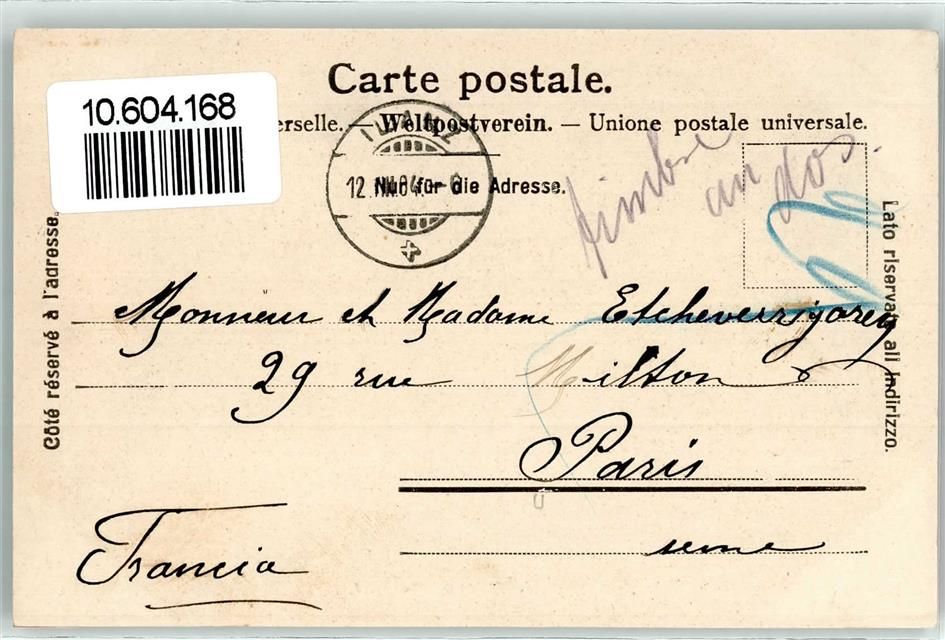 Carte postale.
10.604.168
erselle. — Weltpostverein. — Unione postale universale.
ILANZ
Nur für die Adresse.
Timbre
au dos.
Côté réservé à l'adresse.
Lato riservato all indirizzo.
Monsieur et Madame Etcheverrigarey
29 rue Milton
Paris
seine
Francia